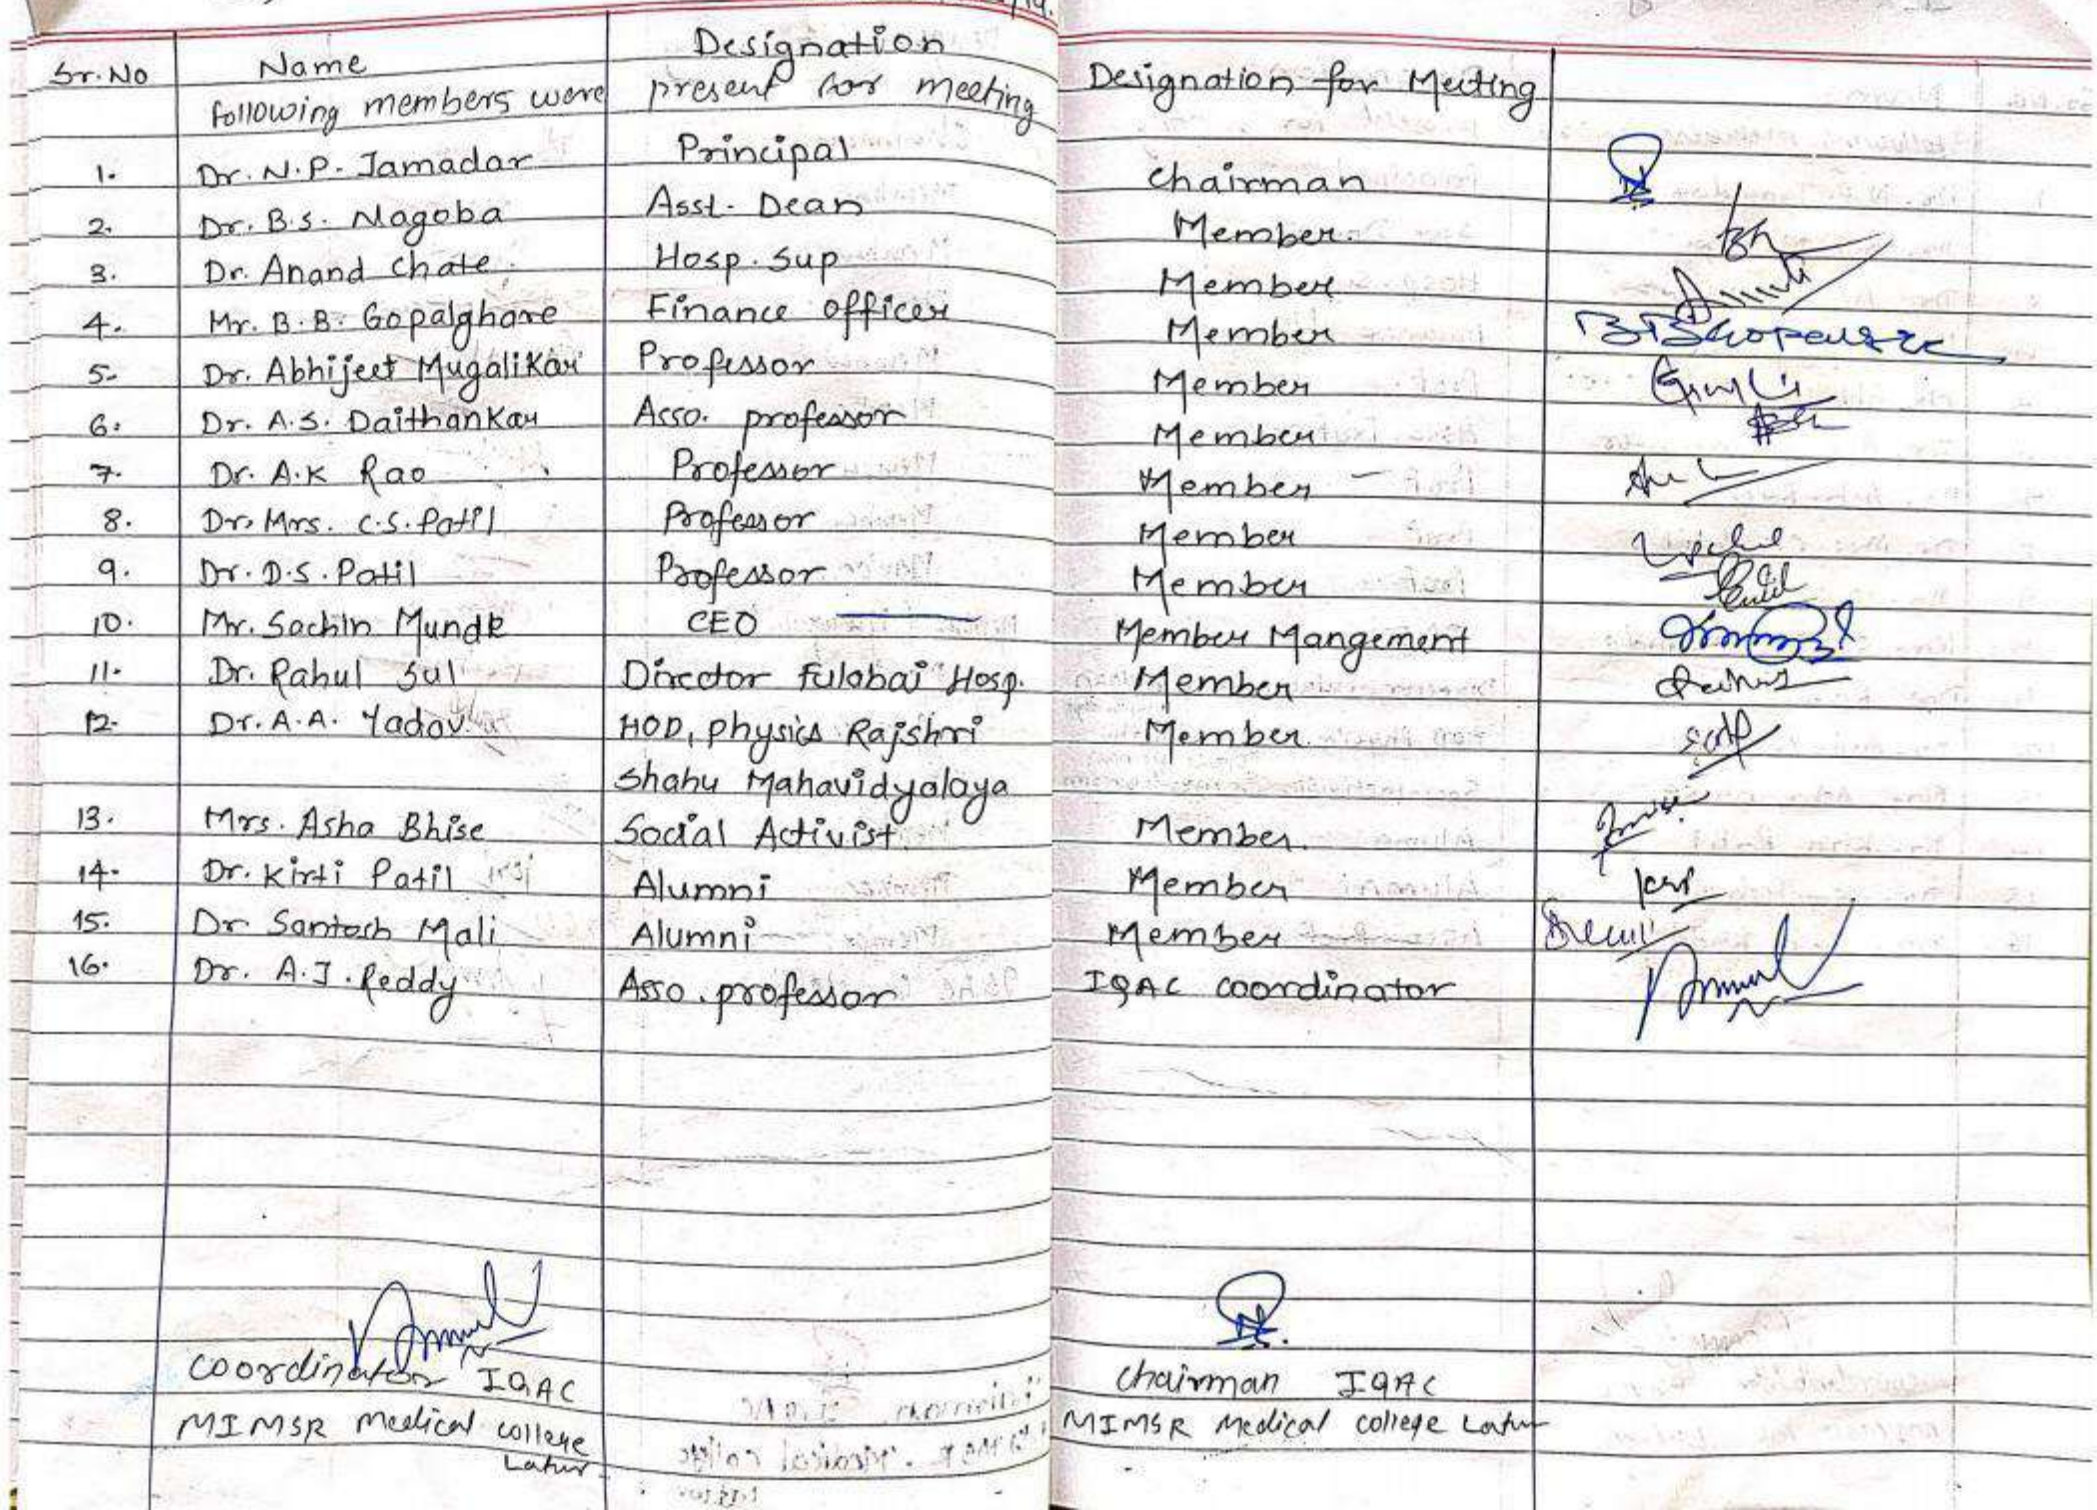 Sr.No Name Designation Designation for Meeting
following members were present for meeting
1. Dr. N.P. Jamadar Principal Chairman
2. Dr. B.S. Nagoba Asst. Dean Member.
3. Dr. Anand Chate. Hosp. Sup Member
4. Mr. B.B. Gopalghare Finance officer Member
5. Dr. Abhijeet Mugalikar Professor Member
6. Dr. A.S. Daithankar Asso. professor Member
7. Dr. A.K Rao Professor Member
8. Dr. Mrs. C.S. Patil Professor Member
9. Dr. D.S. Patil Professor Member
10. Mr. Sachin Munde CEO Member Mangement
11. Dr. Rahul Sul Director Fulabai Hosp. Member
12. Dr. A.A. Yadav HOD, Physics Rajshri Member
Shahu Mahavidyalaya
13. Mrs. Asha Bhise Social Activist Member.
14. Dr. Kirti Patil Alumni Member
15. Dr Santosh Mali Alumni Member
16. Dr. A.J. Reddy Asso. professor IQAC coordinator
Coordinator IQAC
MIMSR Medical college
Latur
Chairman IQAC
MIMSR Medical college Latur